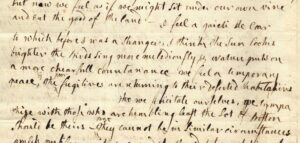 but now we feel as if we might sit under our own vine
and eat the good of the land — I feel a gaieti de Coar
to which before I was a stranger. I think the Sun looks
brighter the Birds sing more melodiously & Nature puts on
a more chearfull countanance. we feel a temporary
peace, the fugitives are returning to their deserted habitations
tho we felicitate ourselves, we sympa
thize with those who are trembling least the Lot of Boston
should be theirs. they cannot be in Similar circumstances